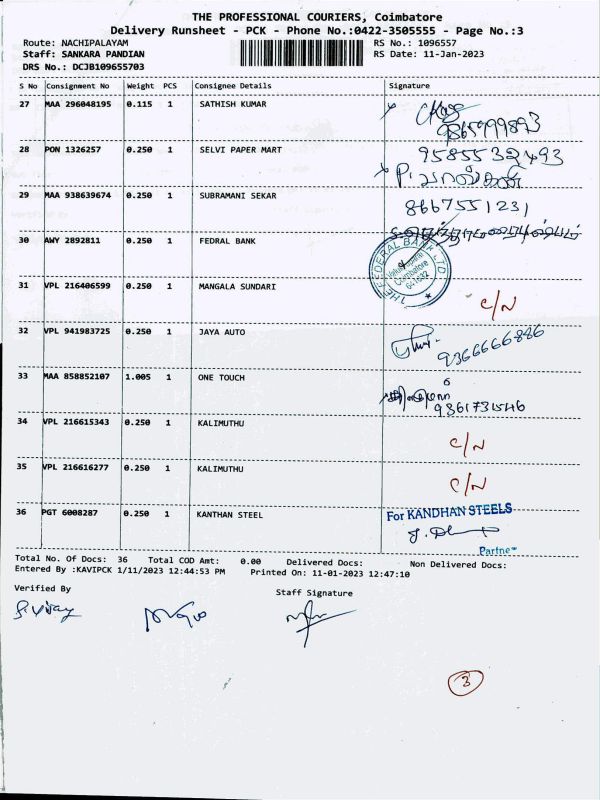 THE PROFESSIONAL COURIERS, Coimbatore
Delivery Runsheet - PCK - Phone No.:0422-3505555 - Page No.:3
Route: NACHIPALAYAM RS No.: 1096557
Staff: SANKARA PANDIAN RS Date: 11-Jan-2023
DRS No.: DCJB109655703
S No Consignment No Weight PCS Consignee Details Signature
27 MAA 296048195 0.115 1 SATHISH KUMAR
28 PON 1326257 0.250 1 SELVI PAPER MART 9585532493
29 MAA 938639674 0.250 1 SUBRAMANI SEKAR 8667551231
30 AWY 2892811 0.250 1 FEDRAL BANK
THE FEDERAL BANK LTD.
Coimbatore
31 VPL 216406599 0.250 1 MANGALA SUNDARI C/N
32 VPL 941983725 0.250 1 JAYA AUTO 9366666886
33 MAA 858852107 1.005 1 ONE TOUCH 9361731546
34 VPL 216615343 0.250 1 KALIMUTHU C/N
35 VPL 216616277 0.250 1 KALIMUTHU C/N
36 PGT 6008287 0.250 1 KANTHAN STEEL For KANDHAN STEELS
Partner
Total No. Of Docs: 36 Total COD Amt: 0.00 Delivered Docs: Non Delivered Docs:
Entered By :KAVIPCK 1/11/2023 12:44:53 PM Printed On: 11-01-2023 12:47:10
Verified By Staff Signature
3